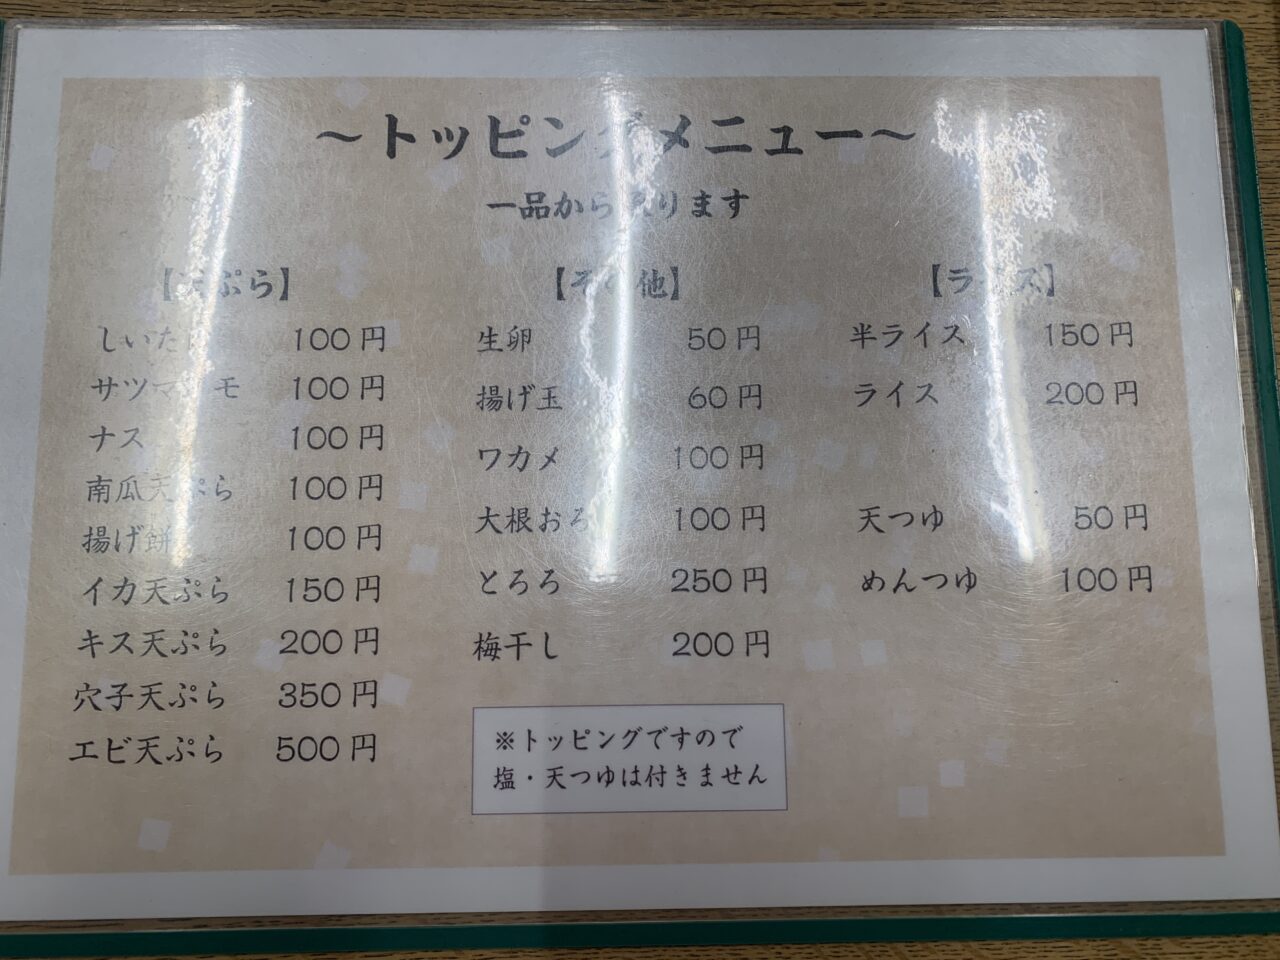 ～トッピングメニュー～
一品から承ります
【天ぷら】
しいたけ 100円
サツマイモ 100円
ナス 100円
南瓜天ぷら 100円
揚げ餅 100円
イカ天ぷら 150円
キス天ぷら 200円
穴子天ぷら 350円
エビ天ぷら 500円
【その他】
生卵 50円
揚げ玉 60円
ワカメ 100円
大根おろし 100円
とろろ 250円
梅干し 200円
※トッピングですので
塩・天つゆは付きません
【ライス】
半ライス 150円
ライス 200円
天つゆ 50円
めんつゆ 100円